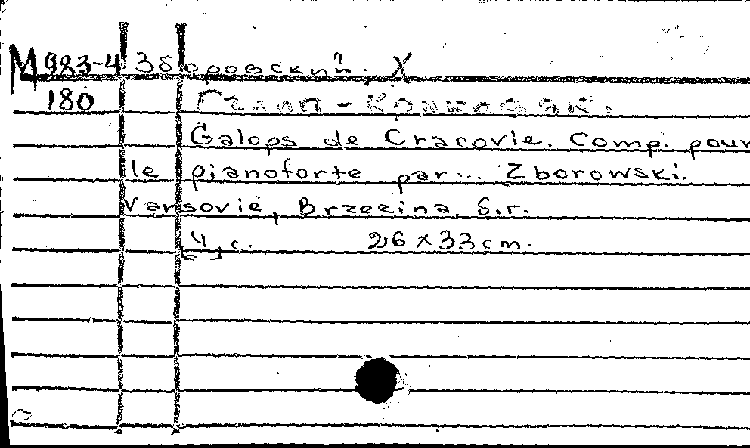 М 983-4 Зборовский. Х
180 Галоп - Краковяк.
Galops de Cracovie. Comp. pour
le pianoforte par... Zborowski.
Varsovie, Brzezina, S.r.
4 с. 26 x 33 cm.